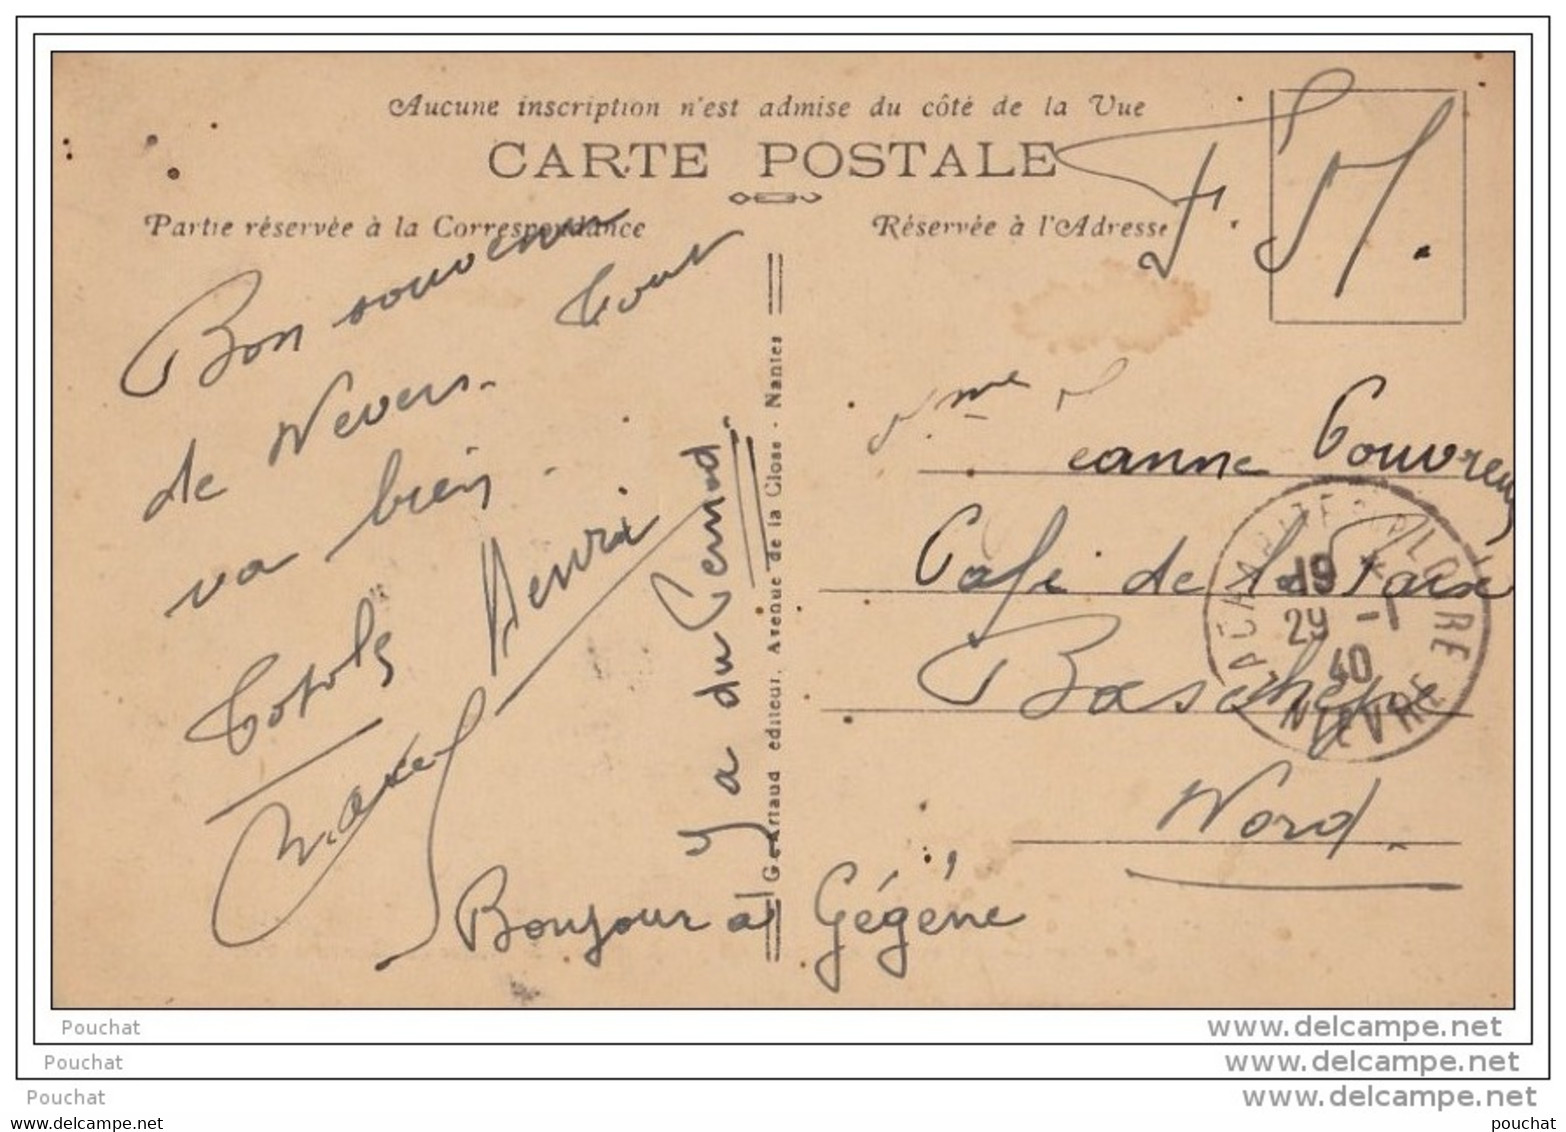 Aucune inscription n'est admise du côté de la Vue
CARTE POSTALE
F. M.
Partie réservée à la Correspondance
Réservée à l'Adresse
Bon souvenir
de Nevers. Tout
va bien.
Henri
Marcel
Y a du Pernod.
Bonjour à Gégéne
G. Artaud éditeur, Avenue de la Close - Nantes
Mme
Jeanne Couvreur
Café de la Paix
Nord.
LA CHARITE S LOIRE
19 *
29 -1
40
NIEVRE
Pouchat
www.delcampe.net
Pouchat
www.delcampe.net
Pouchat
www.delcampe.net
www.delcampe.net
pouchat